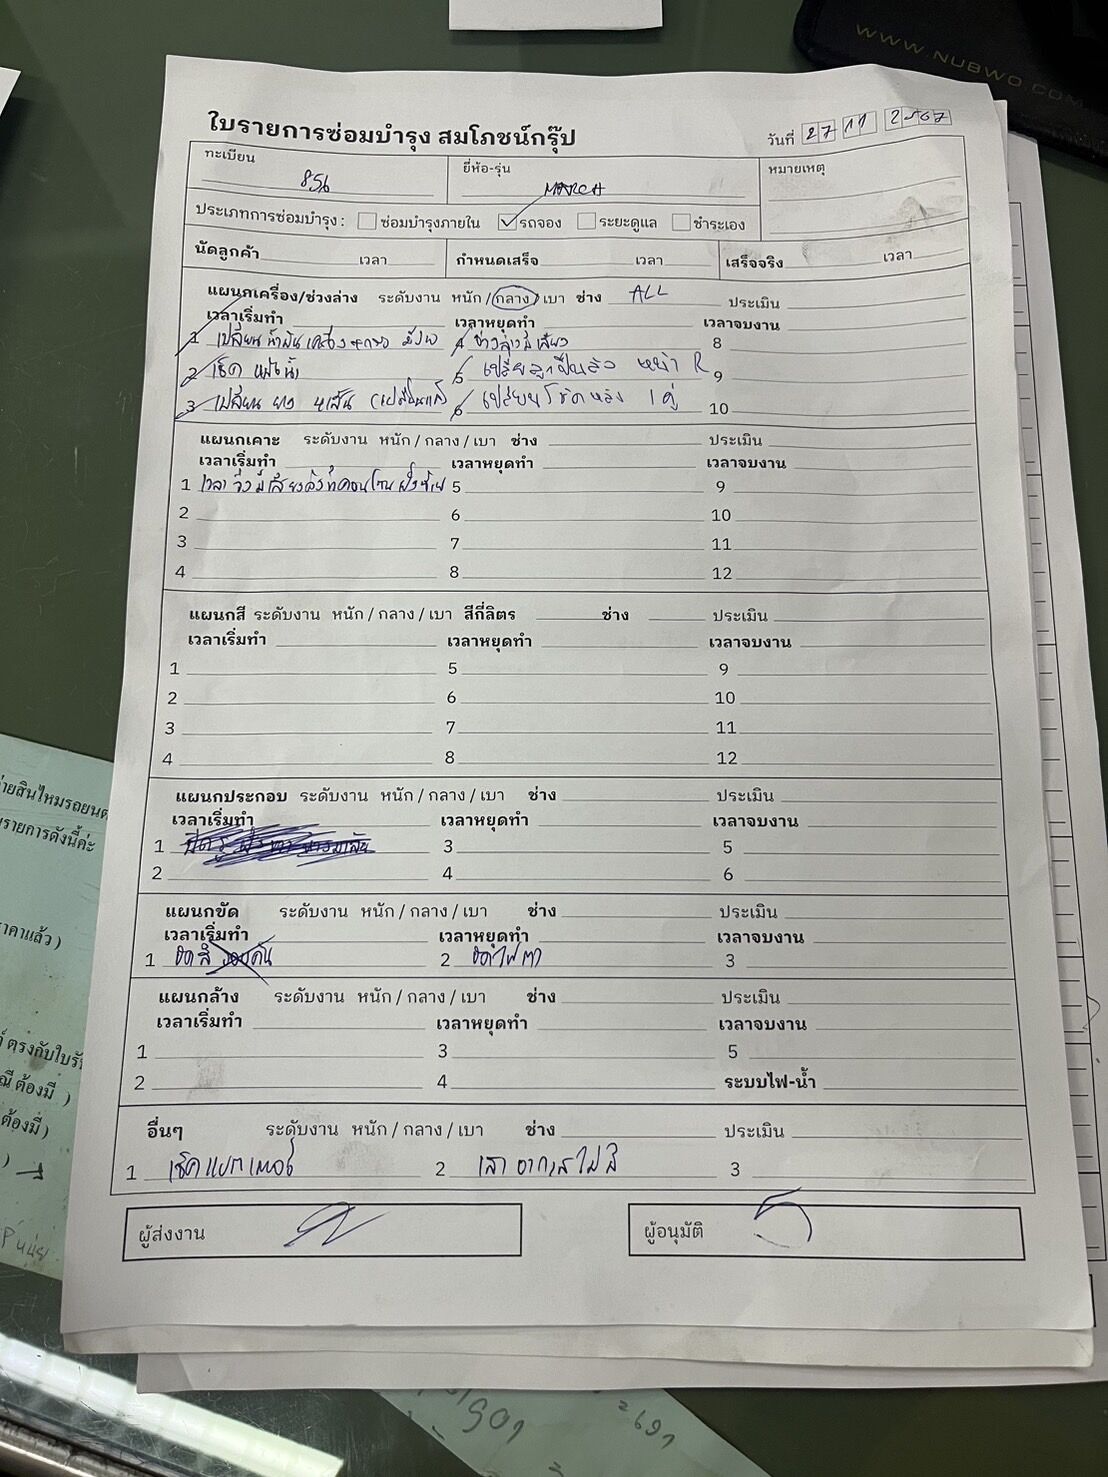 WWW.NUBWO.COM
ใบรายการซ่อมบำรุง สมโภชน์กรุ๊ป
วันที่ 27 11 2567
ทะเบียน 856 ยี่ห้อ-รุ่น MARCH หมายเหตุ
ประเภทการซ่อมบำรุง : ซ่อมบำรุงภายใน ✓ รถจอง ระยะดูแล ชำระเอง
นัดลูกค้า เวลา กำหนดเสร็จ เวลา เสร็จจริง เวลา
แผนกเครื่อง/ช่วงล่าง ระดับงาน หนัก/กลาง/เบา ช่าง ALL ประเมิน
เวลาเริ่มทำ เวลาหยุดทำ เวลาจบงาน
1 เปลี่ยนน้ำมันเครื่อง 4 ช่วงล่างมีเสียง 8
2 เช็ค หม้อน้ำ 5 เปลี่ยนลูกปืนล้อ หน้า R 9
3 เปลี่ยน ยาง 4 เส้น 6 เปลี่ยนโช๊คหลัง 1 คู่ 10
แผนกเคาะ ระดับงาน หนัก / กลาง / เบา ช่าง ประเมิน
เวลาเริ่มทำ เวลาหยุดทำ เวลาจบงาน
1 เวลา วิ่งมีเสียงดังที่คอนโซน 5 9
2 6 10
3 7 11
4 8 12
แผนกสี ระดับงาน หนัก / กลาง / เบา สีกี่ลิตร ช่าง ประเมิน
เวลาเริ่มทำ เวลาหยุดทำ เวลาจบงาน
1 5 9
2 6 10
3 7 11
4 8 12
แผนกประกอบ ระดับงาน หนัก / กลาง / เบา ช่าง ประเมิน
เวลาเริ่มทำ เวลาหยุดทำ เวลาจบงาน
1 3 5
2 4 6
แผนกขัด ระดับงาน หนัก / กลาง / เบา ช่าง ประเมิน
เวลาเริ่มทำ เวลาหยุดทำ เวลาจบงาน
1 ขัดสี รอบคัน 2 ขัดไฟตา 3
แผนกล้าง ระดับงาน หนัก / กลาง / เบา ช่าง ประเมิน
เวลาเริ่มทำ เวลาหยุดทำ เวลาจบงาน
1 3 5
2 4 ระบบไฟ-น้ำ
อื่นๆ ระดับงาน หนัก / กลาง / เบา ช่าง ประเมิน
1 เช็คแบตเตอรี่ 2 เสาอากาศไม่มี 3
ผู้ส่งงาน ผู้อนุมัติ
่ายสินไหมรถยนต
รายการดังนี้ค่ะ
าคาแล้ว )
์ ตรงกับใบรั
ณี ต้องมี )
ต้องมี )